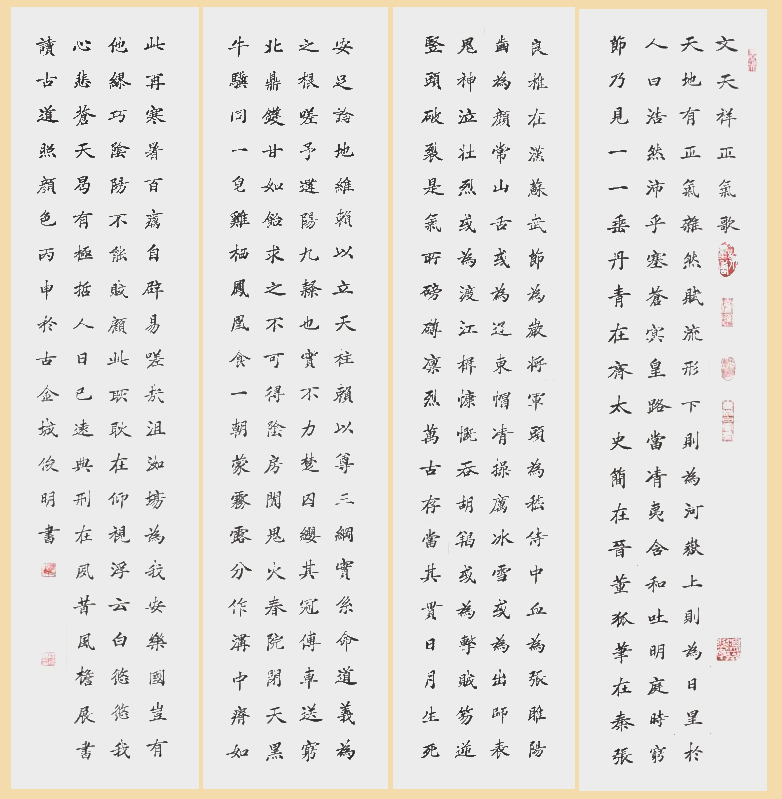 文天祥正氣歌
天地有正氣雜然賦流形下則為河嶽上則為日星於
人曰浩然沛乎塞蒼冥皇路當清夷含和吐明庭時窮
節乃見一一垂丹青在齊太史簡在晉董狐筆在秦張
良椎在漢蘇武節為嚴將軍頭為嵇侍中血為張睢陽
齒為顏常山舌或為遼東帽清操厲冰雪或為出師表
鬼神泣壯烈或為渡江楫慷慨吞胡羯或為擊賊笏逆
豎頭破裂是氣所磅礴凜烈萬古存當其貫日月生死
安足論地維賴以立天柱賴以尊三綱實系命道義為
之根嗟予遘陽九隸也實不力楚囚纓其冠傳車送窮
北鼎鑊甘如飴求之不可得陰房闃鬼火春院閉天黑
牛驥同一皂雞栖鳳凰食一朝蒙霧露分作溝中瘠如
此再寒暑百癘自辟易嗟哉沮洳場為我安樂國豈有
他繆巧陰陽不能賊顧此耿耿在仰視浮云白悠悠我
心悲蒼天曷有極哲人日已遠典刑在夙昔風檐展書
讀古道照顏色丙申於古金城俊明書